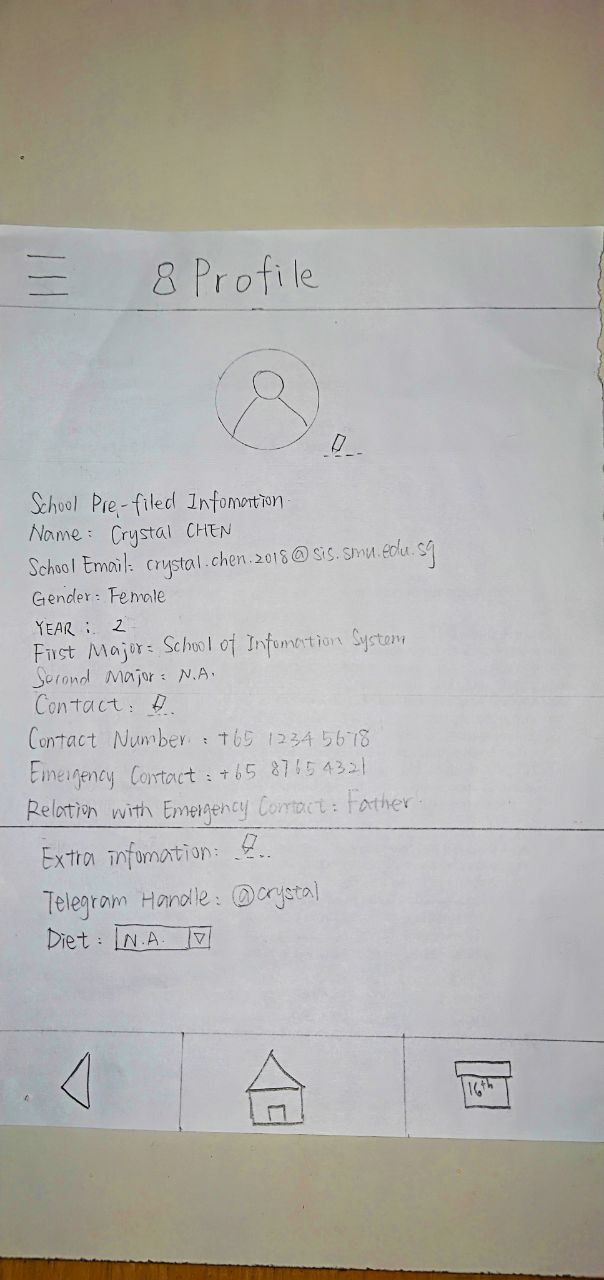 8 Profile
School Pre-filed Infomation
Name: Crystal CHEN
School Email: crystal.chen.2018@sis.smu.edu.sg
Gender: Female
YEAR: 2
First Major: School of Infomation System
Second Major: N.A.
Contact:
Contact Number: +65 1234 5678
Emergency Contact: +65 8765 4321
Relation with Emergency Contact: Father
Extra infomation:
Telegram Handle: @crystal
Diet: N.A.
16th